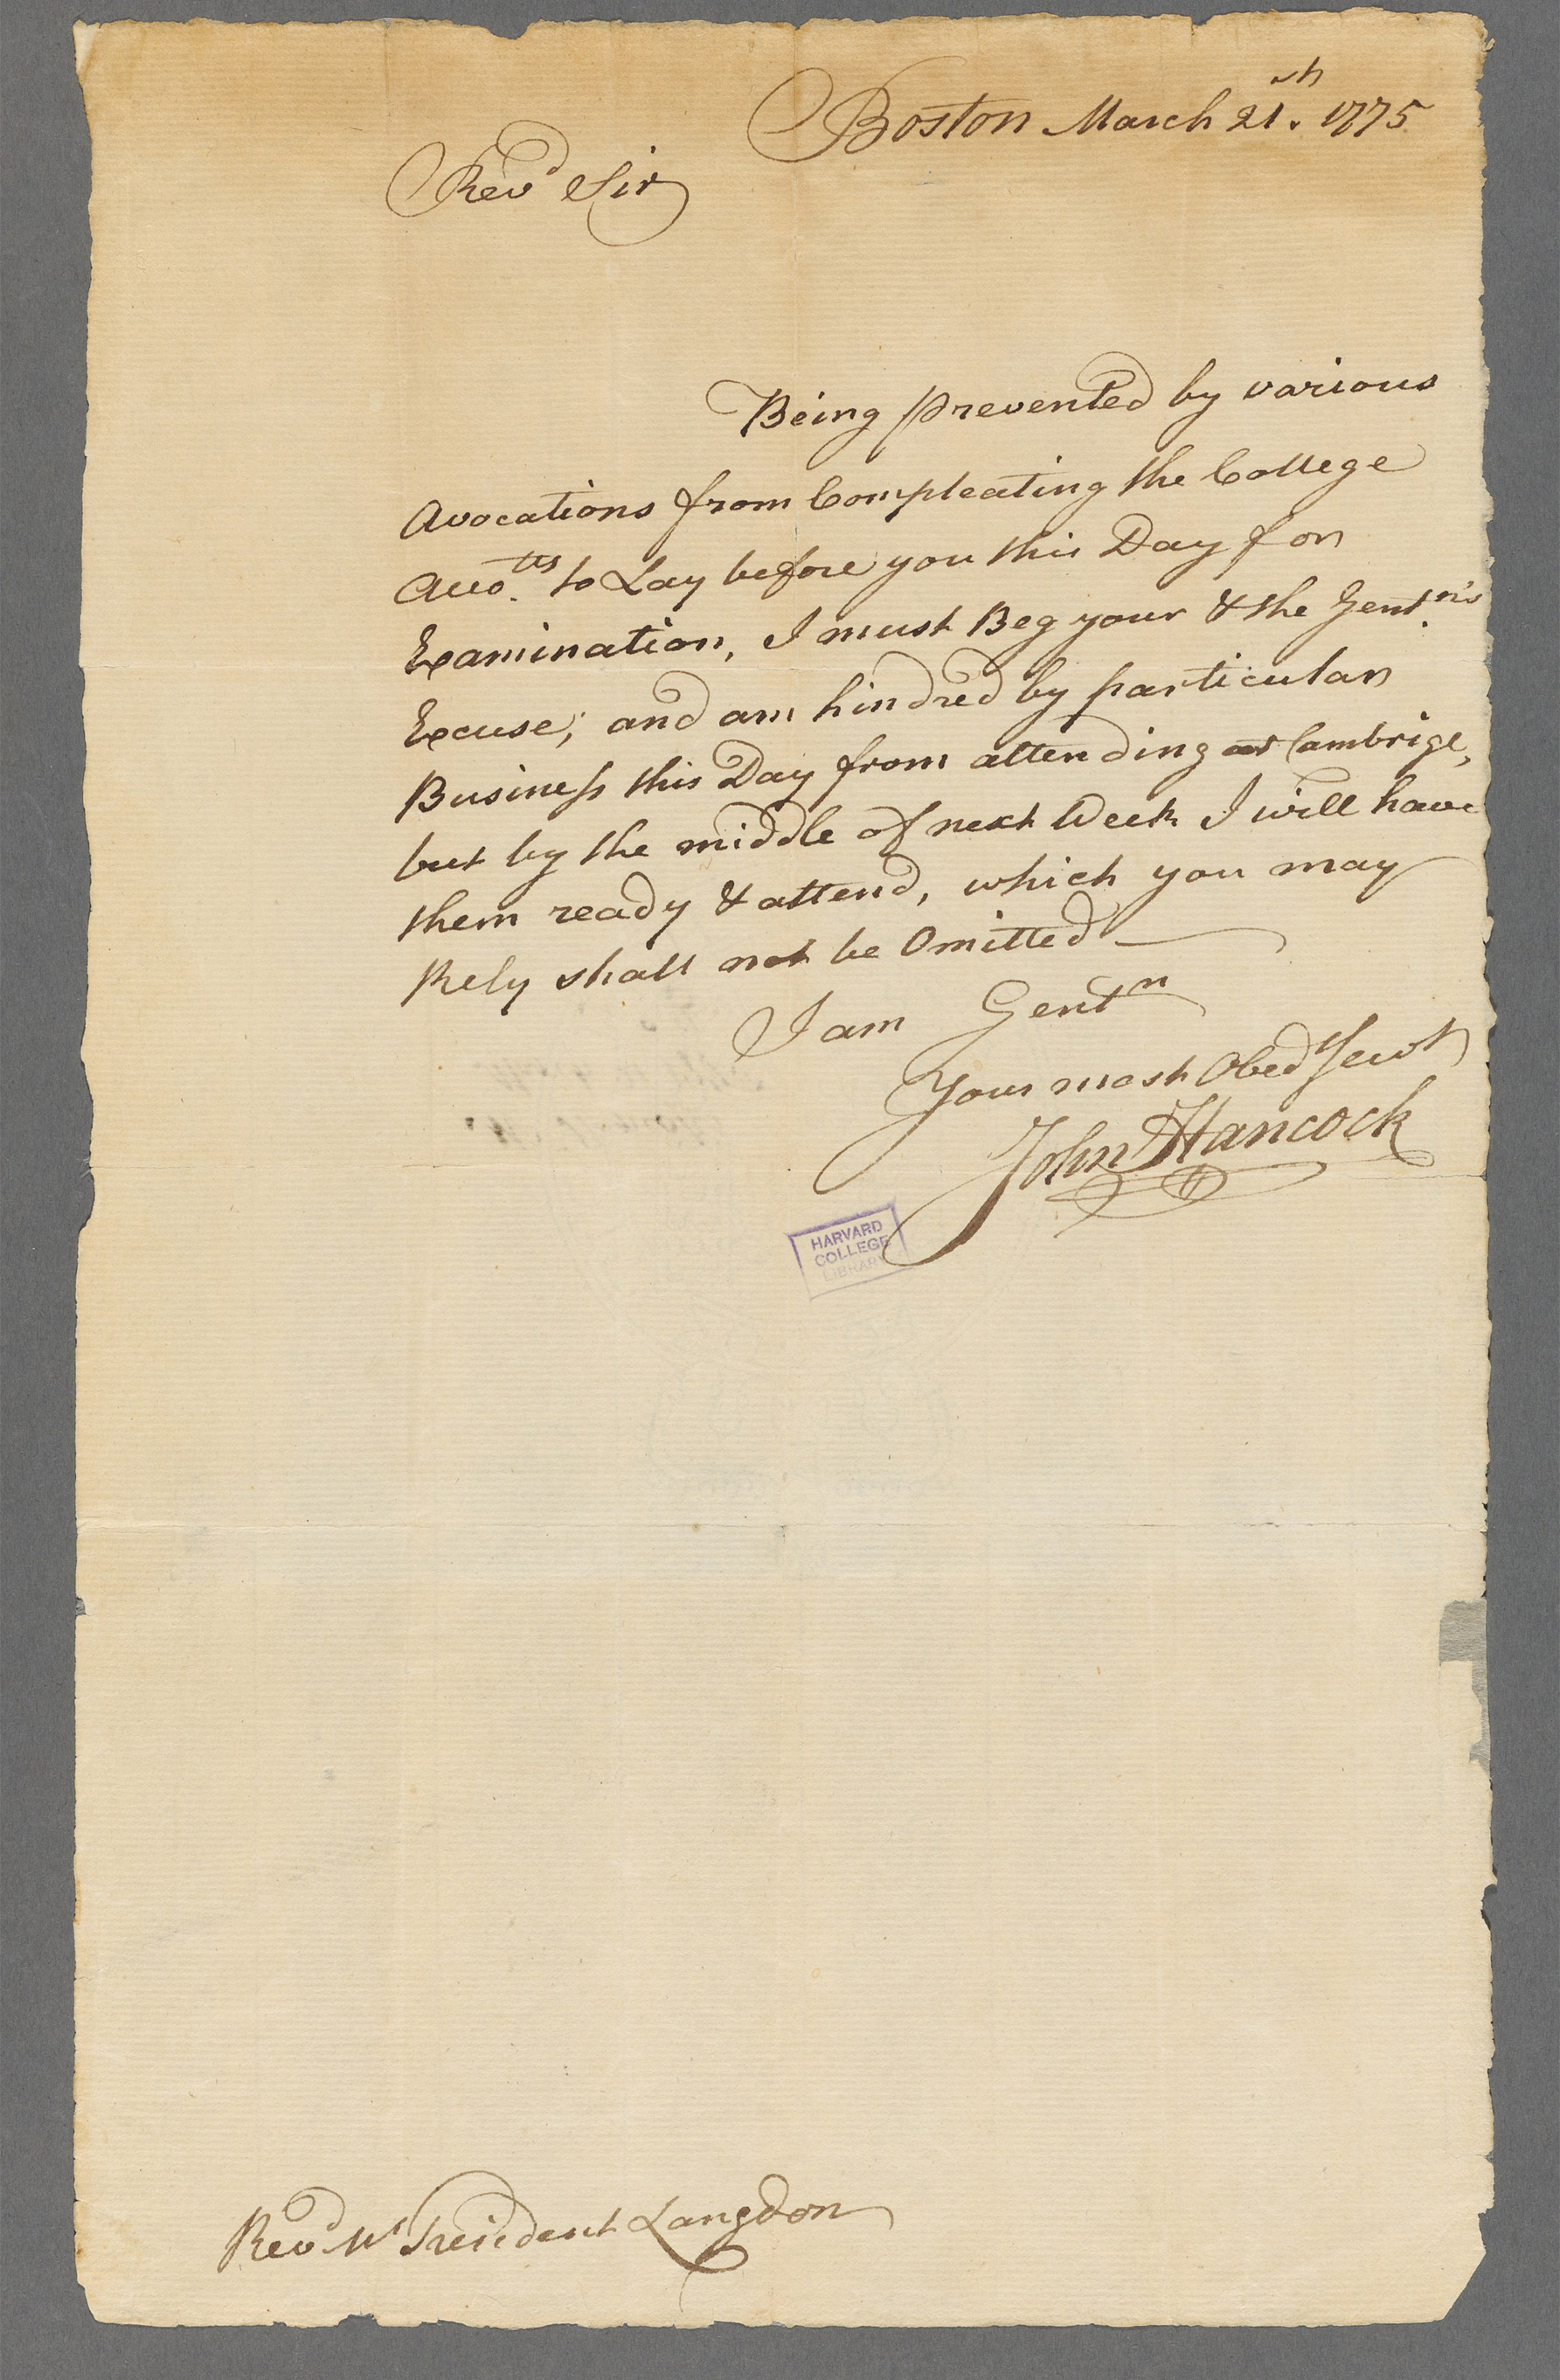 Boston March 21.th 1775
Revd Sir
Being prevented by various
Avocations from Compleating the College
Acco.tts to Lay before you this Day for
Examination, I must Beg your & the Gent.n's
Excuse; and am hindred by particular
Business this Day from attending at Cambrige,
but by the middle of next Week I will have
them ready & attend, which you may
Rely shall not be Omitted
I am Gentn
Your most Obed Servt
John Hancock
HARVARD
COLLEGE
LIBRARY
Revd Mr President Langdon